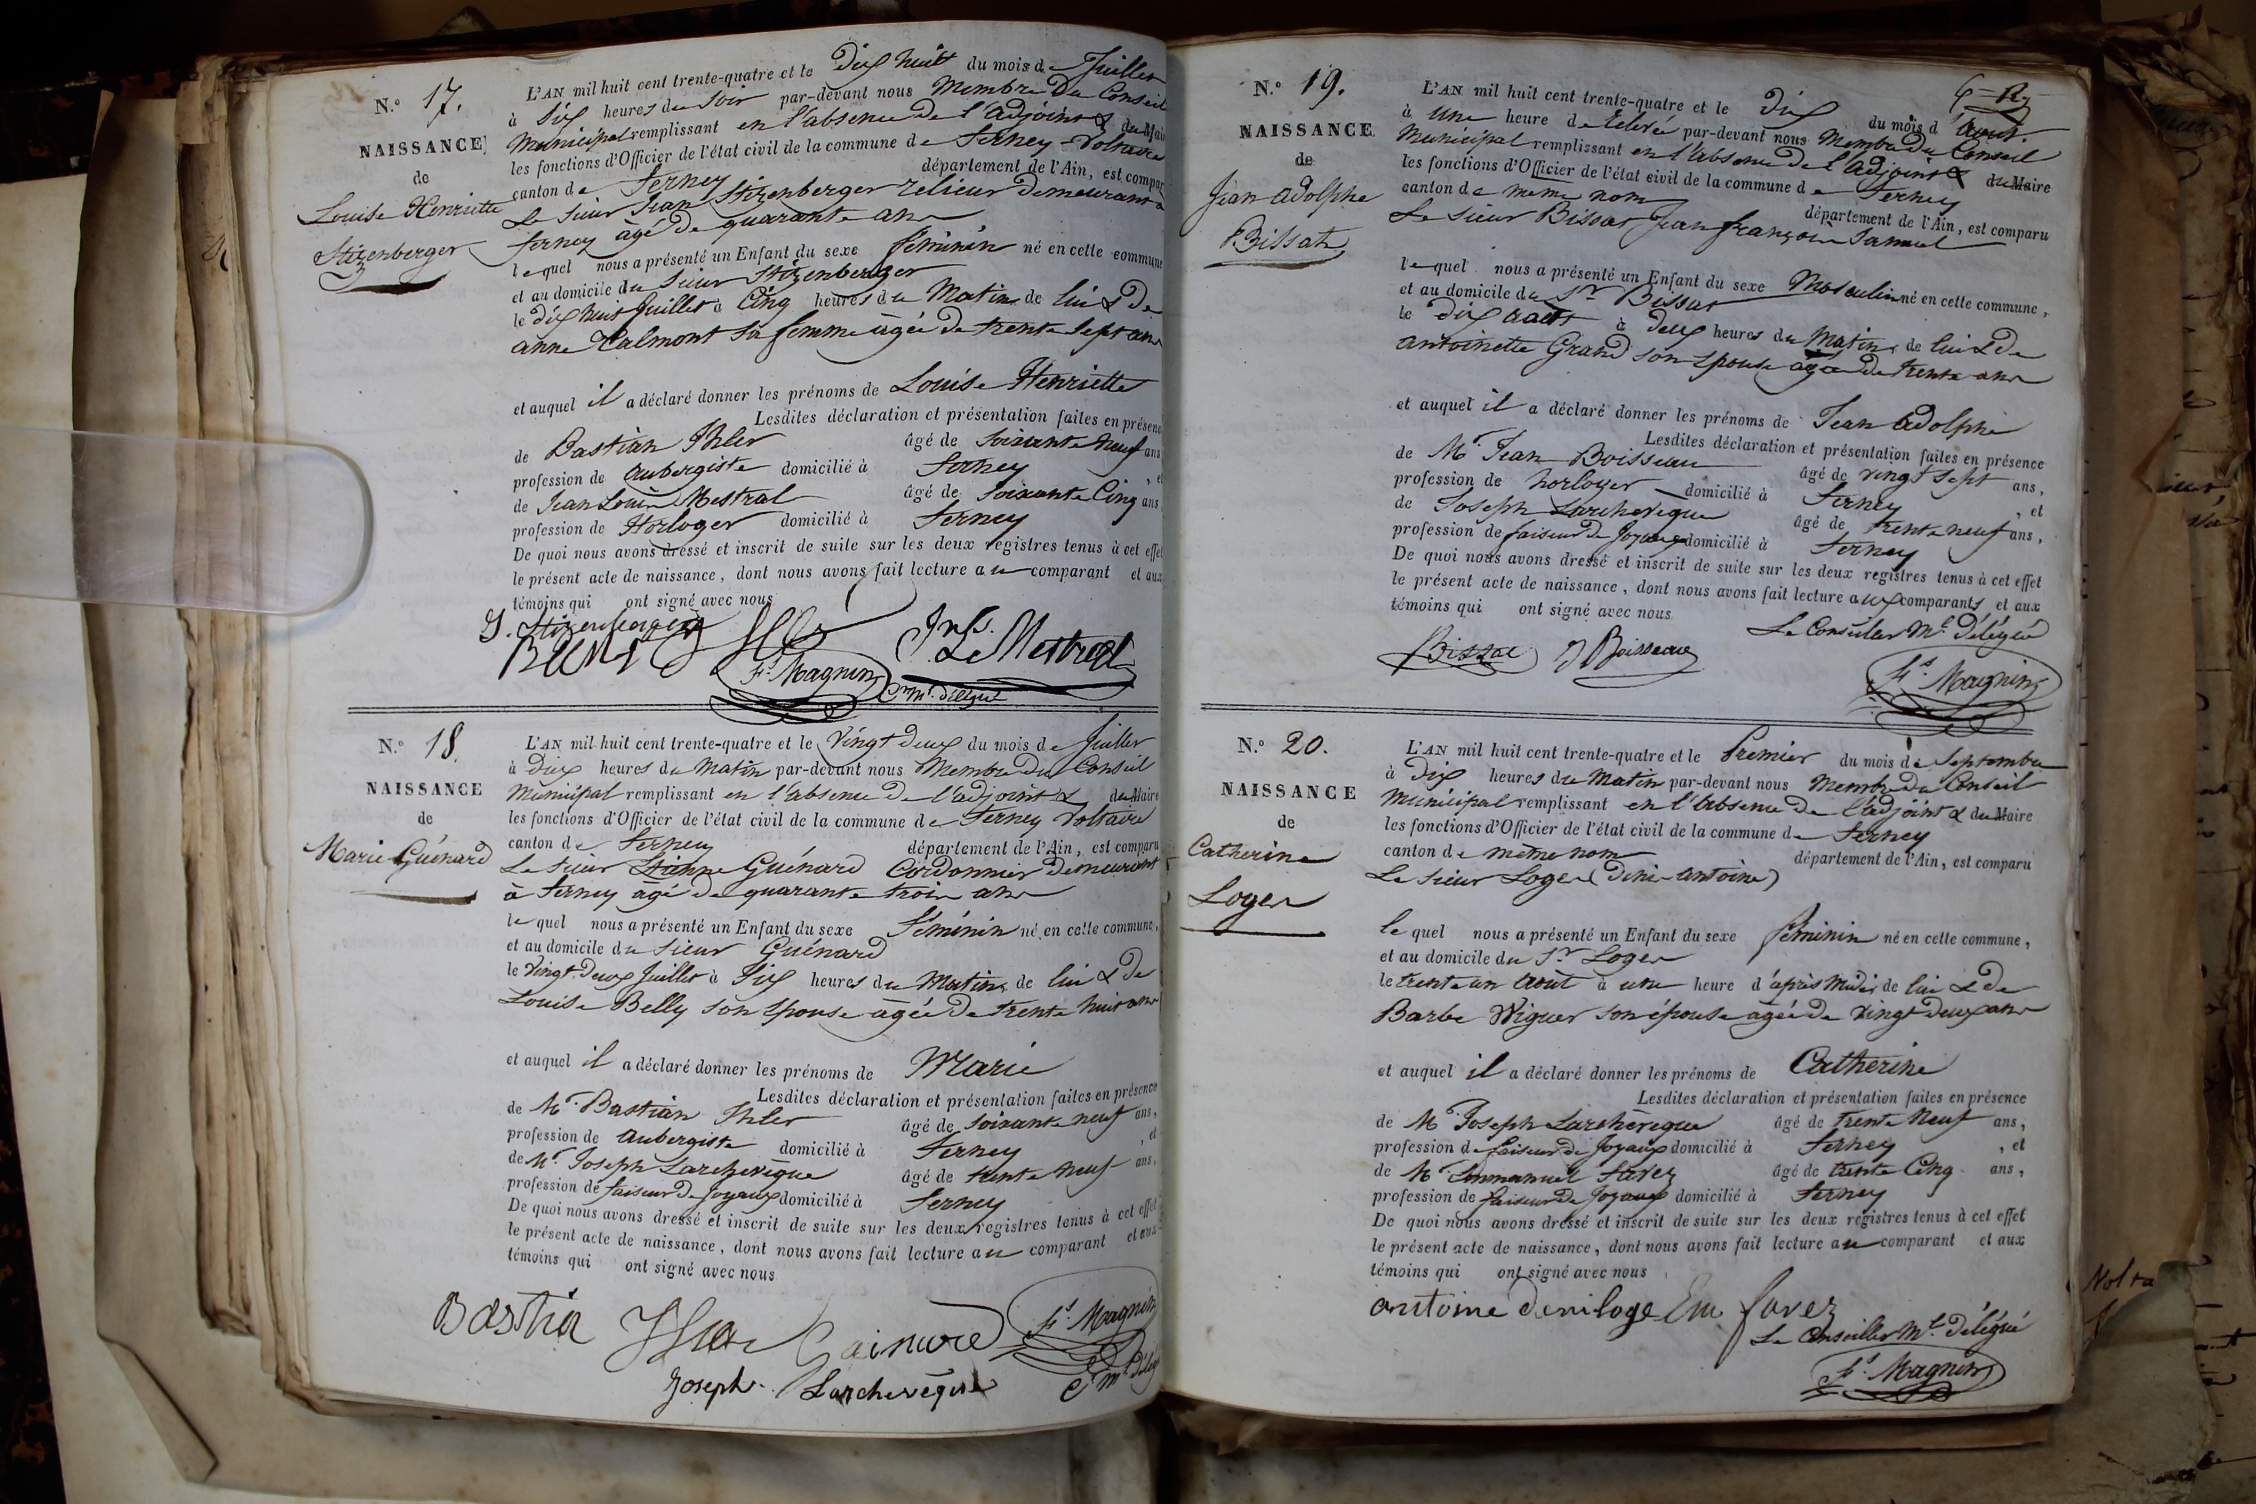 N.º 17.
NAISSANCE
de
Louise Henriette
Stizenberger
L'AN mil huit cent trente-quatre et le Dix huit du mois de Juillet
à Six heures du Soir par-devant nous Membre Du Conseil
Municipal remplissant en l'absence De l'Adjoint & du Maire
les fonctions d'Officier de l'état civil de la commune de Ferney-Voltaire
canton de Ferney département de l'Ain, est compar
Le Sieur Jean Stizenberger relieur Demeurant à
Ferney âgé De quarante ans
lequel nous a présenté un Enfant du sexe féminin né en cette commune
et au domicile du Sieur Stizenberger
le Dix huit Juillet à Cinq heures du Matin de lui & De
anne Talmont Sa femme âgée De trente Sept ans
et auquel il a déclaré donner les prénoms de Louise Henriette
Lesdites déclaration et présentation faites en présenc
de Bastian Ihler âgé de Soixante neuf ans
profession de Aubergiste domicilié à Ferney , et
de Jean Louis Mestral âgé de Soixante Cinq ans
profession de Horloger domicilié à Ferney
De quoi nous avons dressé et inscrit de suite sur les deux registres tenus à cet effet
le présent acte de naissance, dont nous avons fait lecture au comparant et aux
témoins qui ont signé avec nous
J. Stizenberger
Jn Ls. Mestral
Fs. Magnin
N.º 18.
NAISSANCE
de
Marie Guénard
L'AN mil huit cent trente-quatre et le Vingt Deux du mois de Juillet
à Dix heures du Matin par-devant nous Membre Du Conseil
Municipal remplissant en l'absence De l'adjoint & du Maire
les fonctions d'Officier de l'état civil de la commune de Ferney Voltaire
canton de Ferney département de l'Ain, est comparu
Le Sieur Guénard Cordonnier Demeurant
à Ferney âgé De quarante trois ans
lequel nous a présenté un Enfant du sexe Féminin né en cette commune,
et au domicile du Sieur Guénard
le Vingt Deux Juillet à Six heures du Matin de lui & De
Louise Belly Son Epouse âgée De trente huit ans
et auquel il a déclaré donner les prénoms de Marie
Lesdites déclaration et présentation faites en présence
de Mr. Bastian Ihler âgé de Soixante neuf ans,
profession de Aubergiste domicilié à Ferney , et
de Mr. Joseph Larchevêque âgé de trente neuf ans,
profession de faiseur De Joyaux domicilié à Ferney
De quoi nous avons dressé et inscrit de suite sur les deux registres tenus à cet effet
le présent acte de naissance, dont nous avons fait lecture au comparant et aux
témoins qui ont signé avec nous
Bastia
Fs. Magnin
Joseph Larchevêque
N.º 19.
NAISSANCE
de
Jean Adolphe
Bissat
L'AN mil huit cent trente-quatre et le Dix du mois d'Aout
à Une heure de par-devant nous Membre Du Conseil
Municipal remplissant en l'absence De l'Adjoint & du Maire
les fonctions d'Officier de l'état civil de la commune de Ferney
canton de meme nom département de l'Ain, est comparu
Le Sieur Bissat Jean François Samuel
lequel nous a présenté un Enfant du sexe Masculin né en cette commune,
et au domicile du Sr. Bissat
le Dix aout à Deux heures du Matin de lui & De
antoinette Grand son Epouse âgée De trente ans
et auquel il a déclaré donner les prénoms de Jean Adolphe
Lesdites déclaration et présentation faites en présence
de Mr. Jean Boisseau âgé de vingt Sept ans,
profession de horloger domicilié à Ferney , et
de Joseph Larchevêque âgé de trente neuf ans,
profession de faiseur De Joyaux domicilié à Ferney
De quoi nous avons dressé et inscrit de suite sur les deux registres tenus à cet effet
le présent acte de naissance, dont nous avons fait lecture aux comparants et aux
témoins qui ont signé avec nous
Le Conseiller Ml. Délégué
Bissat J Boisseau
Fs. Magnin
N.º 20.
NAISSANCE
de
Catherine
Loger
L'AN mil huit cent trente-quatre et le Premier du mois de Septembre
à Dix heures du Matin par-devant nous Membre Du Conseil
Municipal remplissant en l'absence De l'Adjoint & du Maire
les fonctions d'Officier de l'état civil de la commune de Ferney
canton de même nom département de l'Ain, est comparu
Le Sieur Loger (Denis-Antoine)
lequel nous a présenté un Enfant du sexe féminin né en cette commune,
et au domicile du Sr. Loger
le trente un Août à une heure d'après Midi de lui & De
Barbe Wiguer son épouse âgée De Vingt Deux ans
et auquel il a déclaré donner les prénoms de Catherine
Lesdites déclaration et présentation faites en présence
de Mr. Joseph Larchevêque âgé de trente Neuf ans,
profession de faiseur De Joyaux domicilié à Ferney , et
de Mr. Emmanuel Favez âgé de trente Cinq ans,
profession de faiseur De Joyaux domicilié à Ferney
De quoi nous avons dressé et inscrit de suite sur les deux registres tenus à cet effet
le présent acte de naissance, dont nous avons fait lecture au comparant et aux
témoins qui ont signé avec nous
antoine deniloge Em favez
Le Conseiller Ml. Délégué
Fs. Magnin